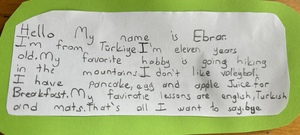 Hello My name is Ebrar.
I'm from Türkiye I'm eleven years
old. My favorite hobby is going hiking
in the mountains I don't like voleybol,
I have pancake, egg and apple Juice for
Breakfast. My faviratie lessons are english, Turkish
and mats. That's all I want to say. bye